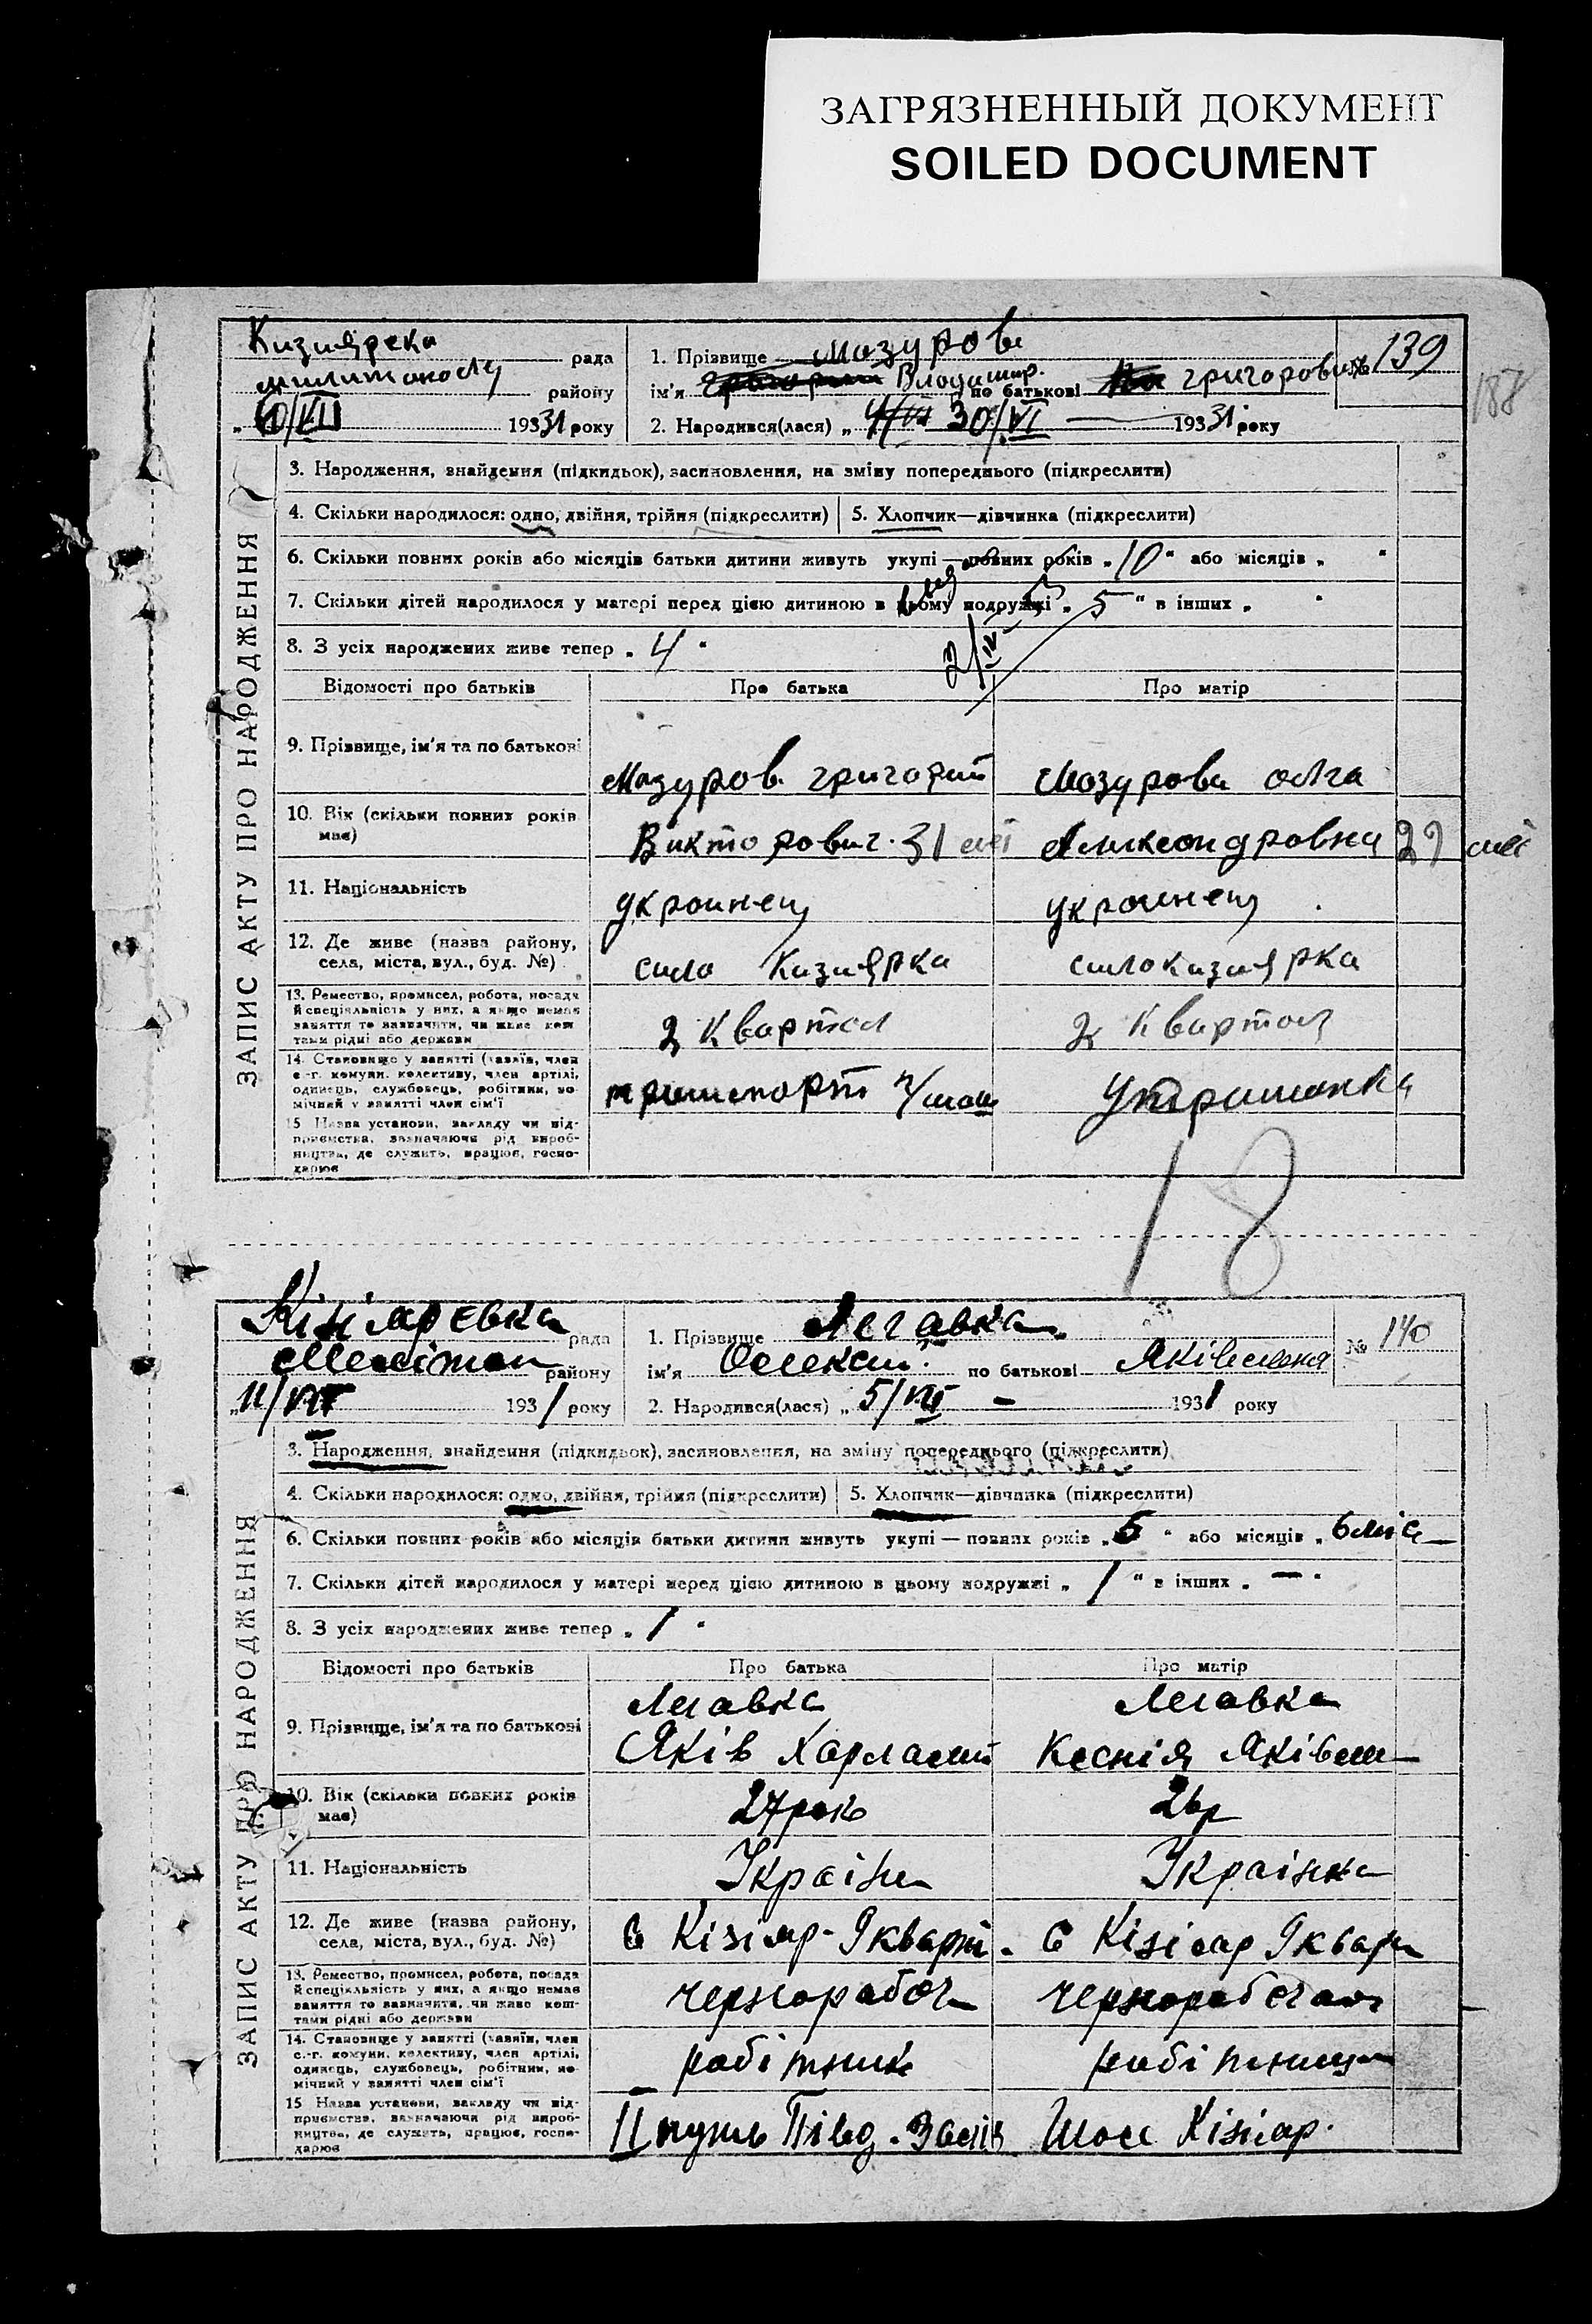 ЗАГРЯЗНЕННЫЙ ДОКУМЕНТ
SOILED DOCUMENT
188
ЗАПИС АКТУ ПРО НАРОДЖЕННЯ
рада
району
10/VII 1931 року
1. Прізвище Мазуров
ім'я Владимир. по батькові григорович
№ 139
2. Народився(лася) „ 30/VI 1931 року
3. Народження, знайдення (підкидьок), засиновлення, на зміну попереднього (підкреслити)
4. Скільки народилося: одно, двійня, трійня (підкреслити) 5. Хлопчик—дівчинка (підкреслити)
6. Скільки повних років або місяців батьки дитини живуть укупі — повних років „ 10 " або місяців „ "
7. Скільки дітей народилося у матері перед цією дитиною в цьому подружжі „ 5 " в інших „ "
8. З усіх народжених живе тепер „ 4 "
Відомості про батьків Про батька Про матір
9. Прізвище, ім'я та по батькові
Мазуров григорий Мазурова олга
10. Вік (скільки повних років має)
Викторович. 31 лет Александровна 29 лет
11. Національність
украинец украинец
12. Де живе (назва району, села, міста, вул., буд. №)
село Кизиярка село кизиярка
13. Ремество, промисел, робота, посада й спеціяльність у них, а якщо немає заняття то зазначити, чи живе коштами рідні або держави
2 Квартал 2 Квартал
14. Становище у занятті (хазяїн, член с.-г. комуни, колективу, член артілі, одинець, службовець, робітник, помічний у занятті член сім'ї
Утриманка
15 Назва установи, закладу чи підприємства, зазначаючи рід виробництва, де служить, працює, господарює
18
ЗАПИС АКТУ ПРО НАРОДЖЕННЯ
Кізіяревка рада
Мелітоп району
11/VII 1931 року
1. Прізвище Легавка
ім'я Олексан. по батькові
№ 140
2. Народився(лася) „ 5/VII - 1931 року
3. Народження, знайдення (підкидьок), засиновлення, на зміну попереднього (підкреслити)
4. Скільки народилося: одно, двійня, трійня (підкреслити) 5. Хлопчик—дівчинка (підкреслити)
6. Скільки повних років або місяців батьки дитини живуть укупі — повних років „ 5 " або місяців „ 6 міс
7. Скільки дітей народилося у матері перед цією дитиною в цьому подружжі „ 1 " в інших „ — "
8. З усіх народжених живе тепер „ 1 "
Відомості про батьків Про батька Про матір
Легавка Легавка
9. Прізвище, ім'я та по батькові
Яків Ксенія
10. Вік (скільки повних років має)
27 рок 26 р
11. Національність
Українка
12. Де живе (назва району, села, міста, вул., буд. №)
с Кізіяр с Кізіяр
13. Ремество, промисел, робота, посада й спеціяльність у них, а якщо немає заняття то зазначити, чи живе коштами рідні або держави
чернорабоч чернорабочая
14. Становище у занятті (хазяїн, член с.-г. комуни, колективу, член артілі, одинець, службовець, робітник, помічний у занятті член сім'ї
робітник робітниця
15 Назва установи, закладу чи підприємства, зазначаючи рід виробництва, де служить, працює, господарює
II путь Півд. Заліз Кізіяр.